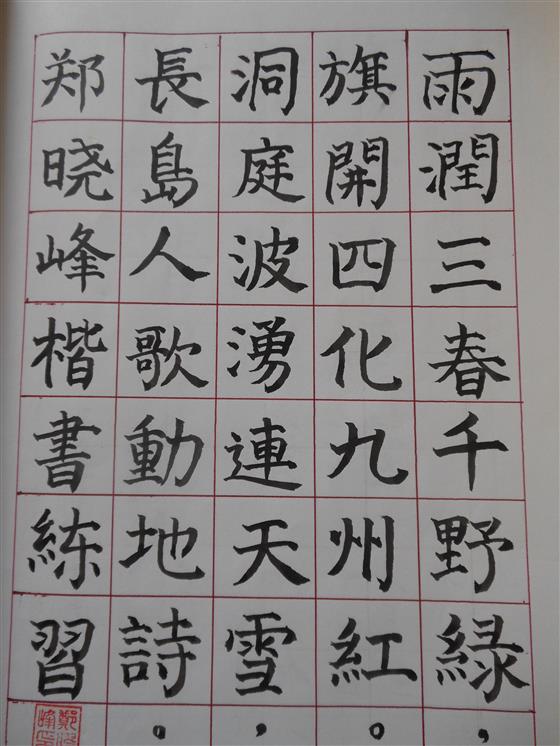 雨潤三春千野緑，
旗開四化九州紅。
洞庭波湧連天雪，
長島人歌動地詩。
郑晓峰楷書練習